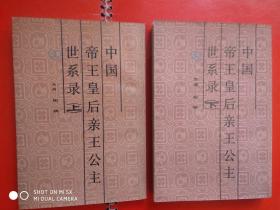 中国
帝王皇后亲王公主
世系录〖上〗
中国
帝王皇后亲王公主
世系录〖下〗
SHOT ON MI MIX
MI DUAL CAMERA